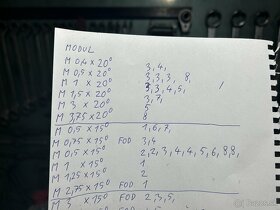 MODUL
M 0,4 x 20° 3,4,
M 0,5 x 20° 3,3,3, 8,
M 1 x 20° 3,3,4,5,
M 1,5 x 20° 3,7,
M 3 x 20° 5
M 3,75 x 20° 8
M 0,5 x 15° 1,6,
M 0,75 x 15° FOD 3,5
M 0,5 x 15° 2,2,3,4,4,5,6,8,8,
M 1 x 15° 1
M 1,25 x 15° 2
M 2,75 x 15° FOD 1
M 3 x 15° 2,3,5,
FOD 1